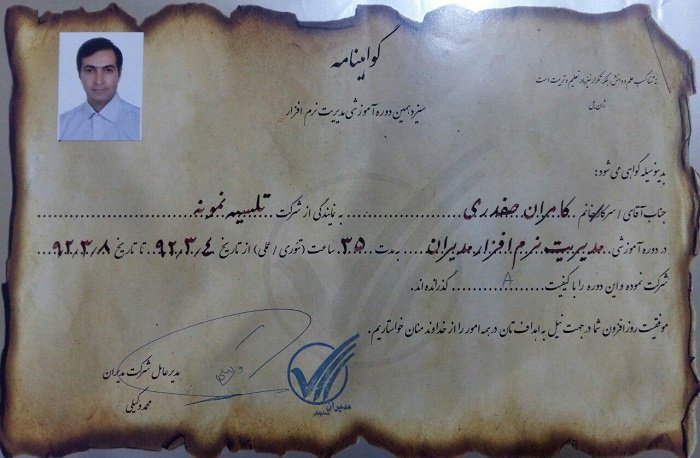 گواهینامه
نه تنها کسب علم و دانش بلکه تکرار نیز بنیاد تعلیم و تربیت است
سیزدهمین دوره آموزشی مدیریت نرم افزار
بدینوسیله گواهی می شود :
جناب آقای / سرکار خانم ... کامران صفدری ... به نمایندگی از شرکت ... تلیسه نمونه ...
در دوره آموزشی ... مدیریت نرم افزار مدیران ... به مدت ... ۳۵ ... ساعت (تئوری / عملی) از تاریخ ۹۲/۳/۴ تا تاریخ ۹۲/۳/۸
شرکت نموده و این دوره را با کیفیت ... A ... گذرانده اند.
موفقیت روز افزون شما در جهت نیل به اهداف تان در همه امور را از خداوند منان خواستاریم.
مدیر عامل شرکت مدیران
محمد وکیلی
مدیران